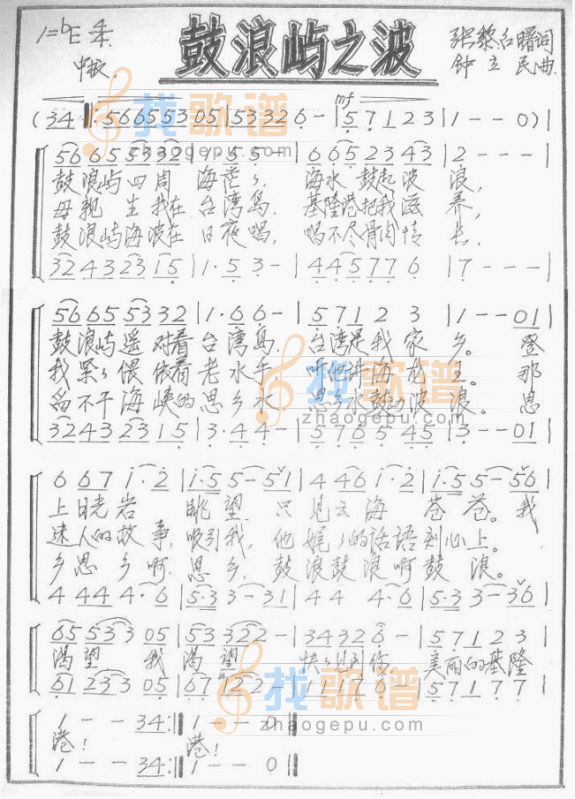 1=♭E 4/4
中板.
鼓浪屿之波
张藜 红曙词
钟立民曲
mf
(34·||:·5 66 5 53 05|53 32 6 -|5 7 1 2 3|1 - - 0)|
56 65 53 32|1·5 5 -|6 65 23 43|2 - - -|
鼓浪屿四周 海茫々 海水鼓起波 浪,
母亲生我在 台湾岛 基隆港把我滋 养,
鼓浪屿海波在 日夜唱, 唱不尽骨肉情 长,
32 43 23 15|1·5 3 -|4 45 77 6|7 - - -|
56 65 53 32|1·6 6 -|5 71 2 3|1 - - 01|
鼓浪屿遥对着台湾岛 台湾是我家 乡。登
我紧々偎依着老水牛 海龙王。那
舀不干海峡的思乡水 思乡水鼓的波 浪。思
32 43 23 15|3·4 4 -|5 76 5 45|3 - - 01|
6 67 1·2|1·5 5 - 51|4 46 1·2|1·5 5 - 56|
上日光岩 眺望 只见云海 苍苍。我
迷人的故事, 吸引我, 他娓々的话语刻心上。
乡思乡啊 思乡, 鼓浪鼓浪啊鼓浪。
4 44 4·6|5·3 3 - 31|4 4 4·6|5·3 3 - 36|
65 53 3 05|53 32 2 -|34 32 6 -|5 7 1 2 3|
渴望 我渴望 快々见到你 美丽的基隆
61 23 3 05|67 12 2 -|11 17 6 -|5 7 1 7 7|
1 - - 34:||1 - - 0||
港! 港!
1 - - 34:||1 - - 0||
找歌谱
zhaogepu.com
找歌谱
zhaogepu.com
找歌谱
zhaogepu.com